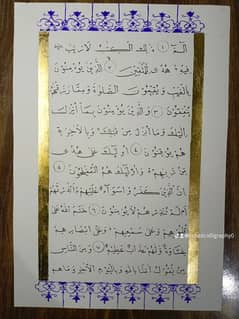 الٓمٓ ١ ذٰلِكَ الْكِتٰبُ لَا رَيْبَ
فِيهِ هُدًى لِّلْمُتَّقِينَ ٢ الَّذِينَ يُؤْمِنُونَ
بِالْغَيْبِ وَيُقِيمُونَ الصَّلٰوةَ وَمِمَّا رَزَقْنٰهُمْ
يُنفِقُونَ ٣ وَالَّذِينَ يُؤْمِنُونَ بِمَا أُنْزِلَ
إِلَيْكَ وَمَا أُنْزِلَ مِنْ قَبْلِكَ وَبِالْآخِرَةِ
هُمْ يُوقِنُونَ ٤ أُولٰئِكَ عَلٰى هُدًى
مِّنْ رَّبِّهِمْ وَأُولٰئِكَ هُمُ الْمُفْلِحُونَ ٥
إِنَّ الَّذِينَ كَفَرُوا سَوَاءٌ عَلَيْهِمْ ءَأَنْذَرْتَهُمْ
أَمْ لَمْ تُنْذِرْهُمْ لَا يُؤْمِنُونَ ٦ خَتَمَ اللّٰهُ عَلٰى
قُلُوبِهِمْ وَعَلٰى سَمْعِهِمْ وَعَلٰى أَبْصَارِهِمْ
غِشَاوَةٌ وَلَهُمْ عَذَابٌ عَظِيمٌ ٧ وَمِنَ النَّاسِ
مَنْ يَقُولُ آمَنَّا بِاللّٰهِ وَبِالْيَوْمِ الْآخِرِ وَمَا هُمْ